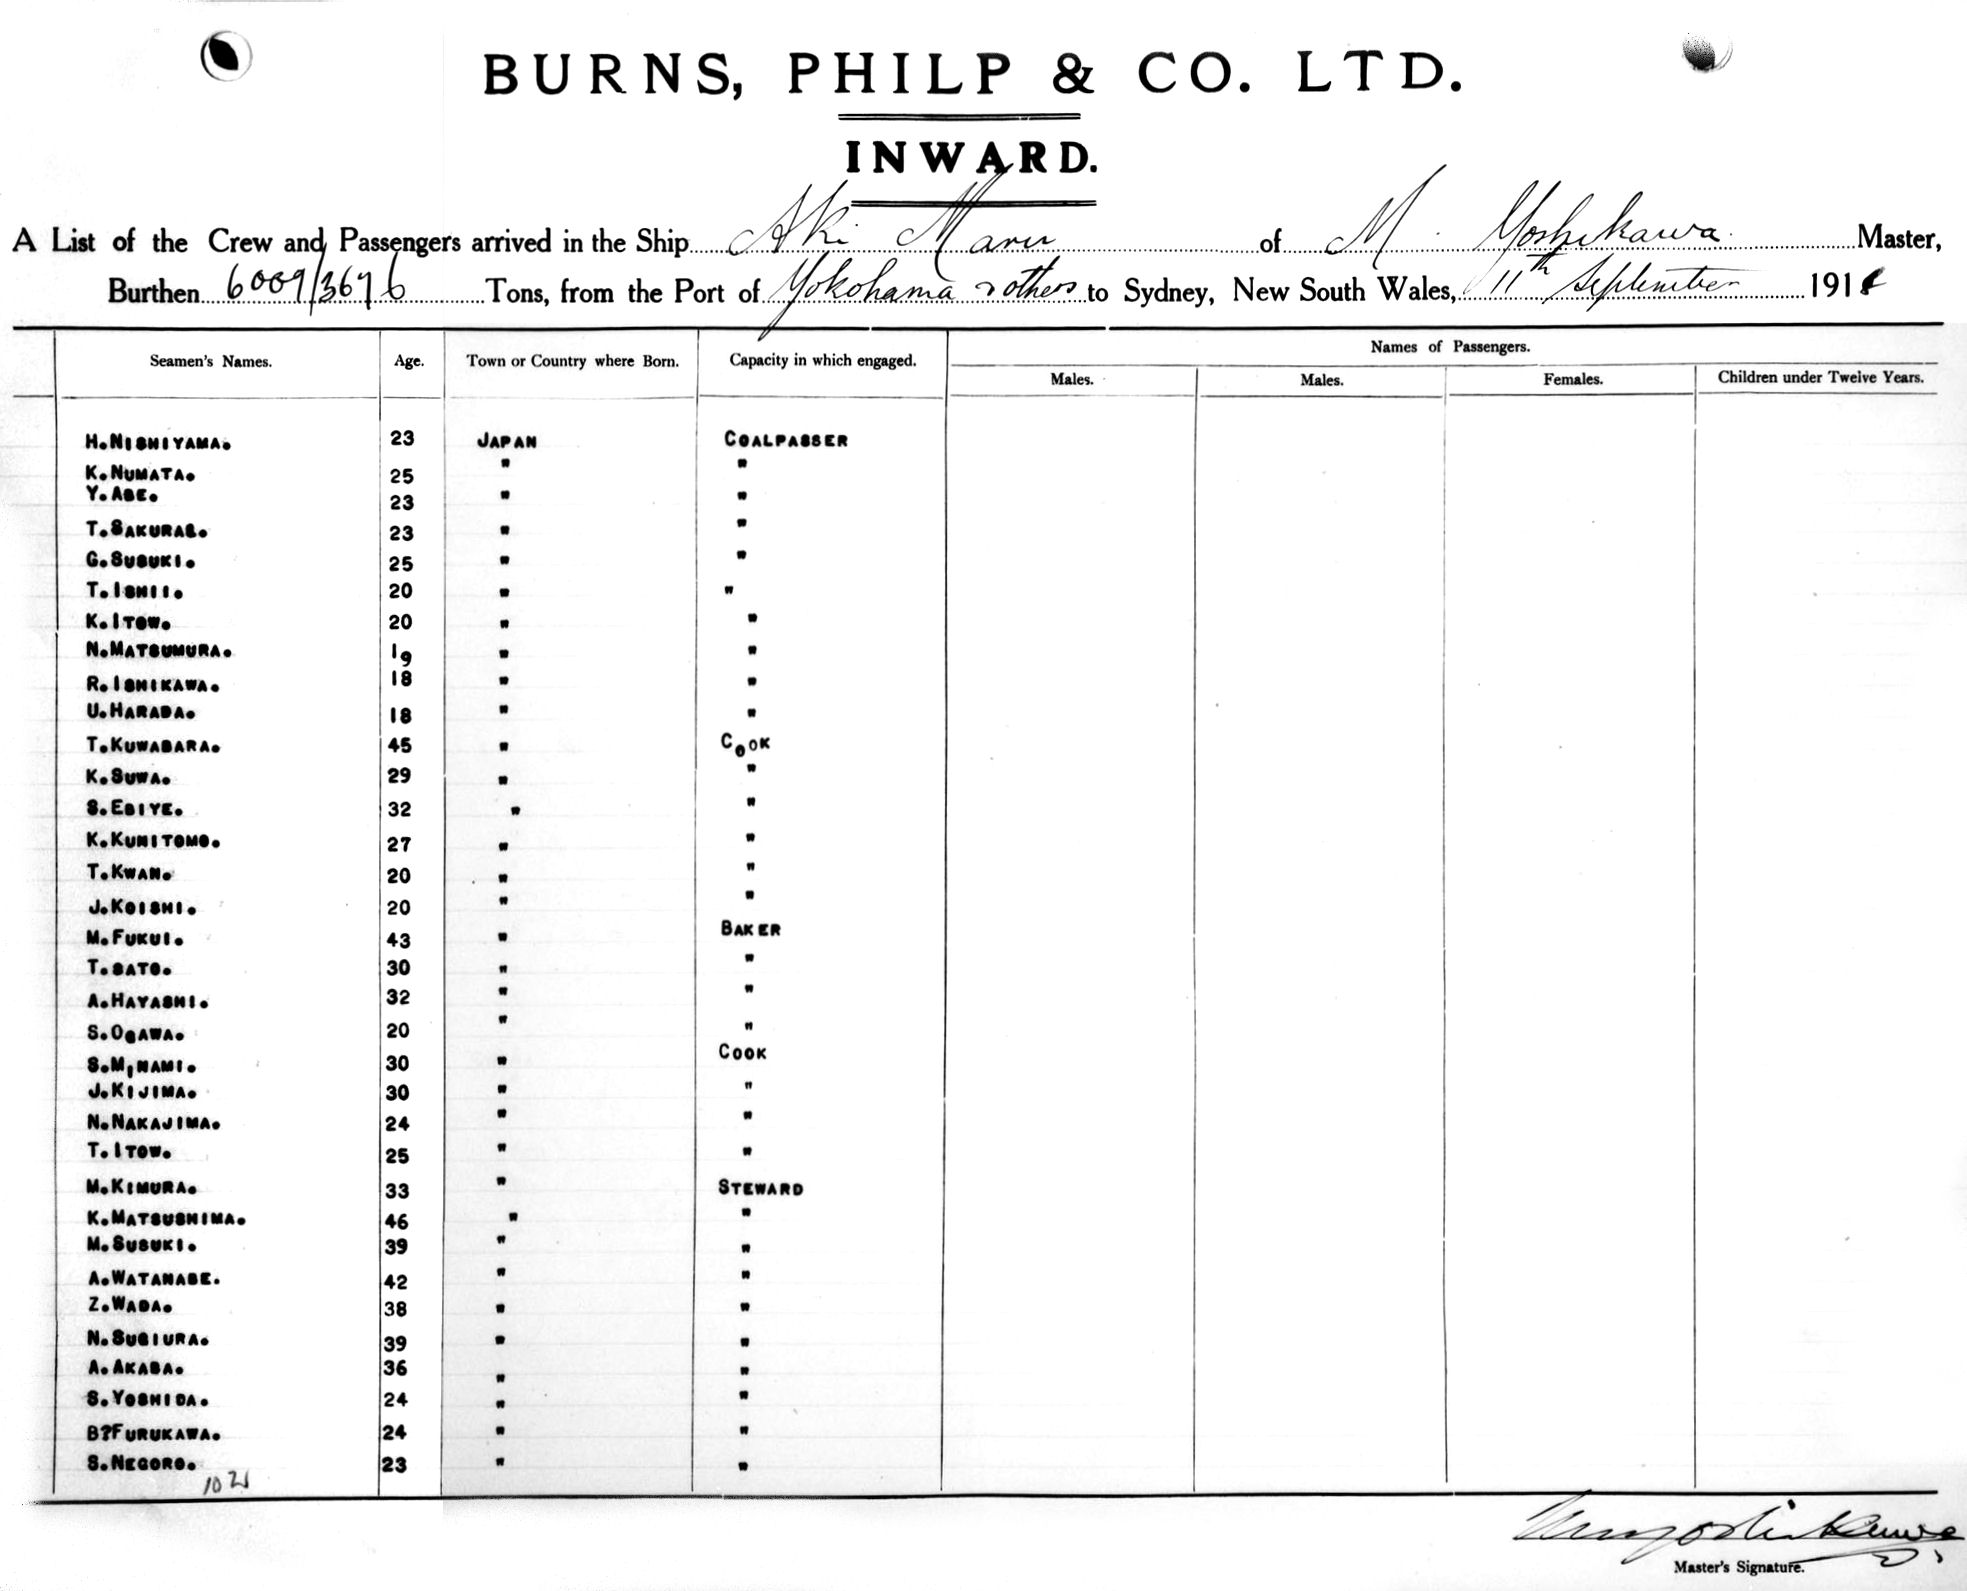 BURNS, PHILP & CO. LTD.
INWARD.
A List of the Crew and Passengers arrived in the Ship Aki Maru of M. Yoshikawa Master,
Burthen 6009/3676 Tons, from the Port of Yokohama & others to Sydney, New South Wales, 11th September 191
Names of Passengers.
Seamen's Names. Age. Town or Country where Born. Capacity in which engaged. Males. Males. Females. Children under Twelve Years.
H.NISHIYAMA. 23 JAPAN COALPASSER
K.NUMATA. 25 " "
Y.ABE. 23 " "
T.SAKURAI. 23 " "
G.SUSUKI. 25 " "
T.ISHII. 20 " "
K.ITOW. 20 " "
N.MATSUMURA. 19 " "
R.ISHIKAWA. 18 " "
U.HARADA. 18 " "
T.KUWABARA. 45 " COOK
K.SUWA. 29 " "
S.EBIYE. 32 " "
K.KUNITOMO. 27 " "
T.KWAN. 20 " "
J.KOISHI. 20 " "
M.FUKUI. 43 " BAKER
T.SATO. 30 " "
A.HAYASHI. 32 " "
S.OGAWA. 20 " "
S.MINAMI. 30 " COOK
J.KIJIMA. 30 " "
N.NAKAJIMA. 24 " "
T.ITOW. 25 " "
M.KIMURA. 33 " STEWARD
K.MATSUSHIMA. 46 " "
M.SUSUKI. 39 " "
A.WATANABE. 42 " "
Z.WADA. 38 " "
N.SUGIURA. 39 " "
A.AKABA. 36 " "
S.YOSHIDA. 24 " "
B?FURUKAWA. 24 " "
S.NEGORO. 23 " "
Master's Signature.